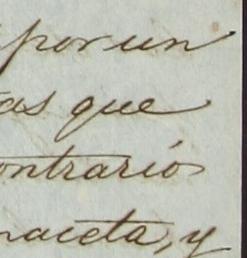 por un
as que
ontrario
naceta, y